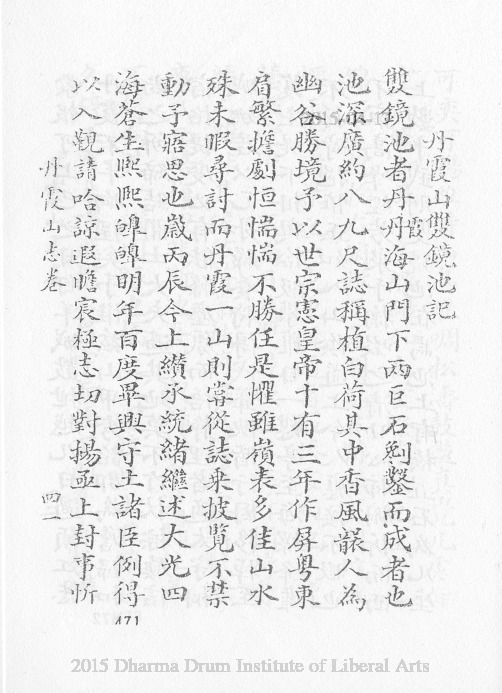 丹霞山雙鏡池記
雙鏡池者丹丹海山門下兩巨石剜鑿而成者也
霞
池深廣約八九尺誌稱植白荷其中香風襲人為
幽谷勝境予以世宗憲皇帝十有三年作屏粵東
肩繁擔劇恒惴惴不勝任是懼雖嶺表多佳山水
殊未暇尋討而丹霞一山則嘗從誌乘披覽不禁
動予寤思也歲丙辰今上纘承統緒繼述大光四
海蒼生熙熙皥皥明年百度畢興守土諸臣例得
以入覲請哈諒遐瞻宸極志切對揚亟上封事忻
丹霞山志卷
四一
471
2015 Dharma Drum Institute of Liberal Arts